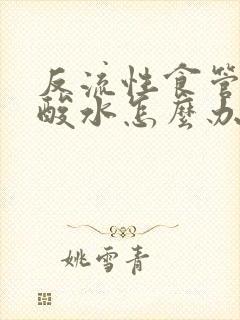 反流性食管
酸水怎麼办
姚雪青